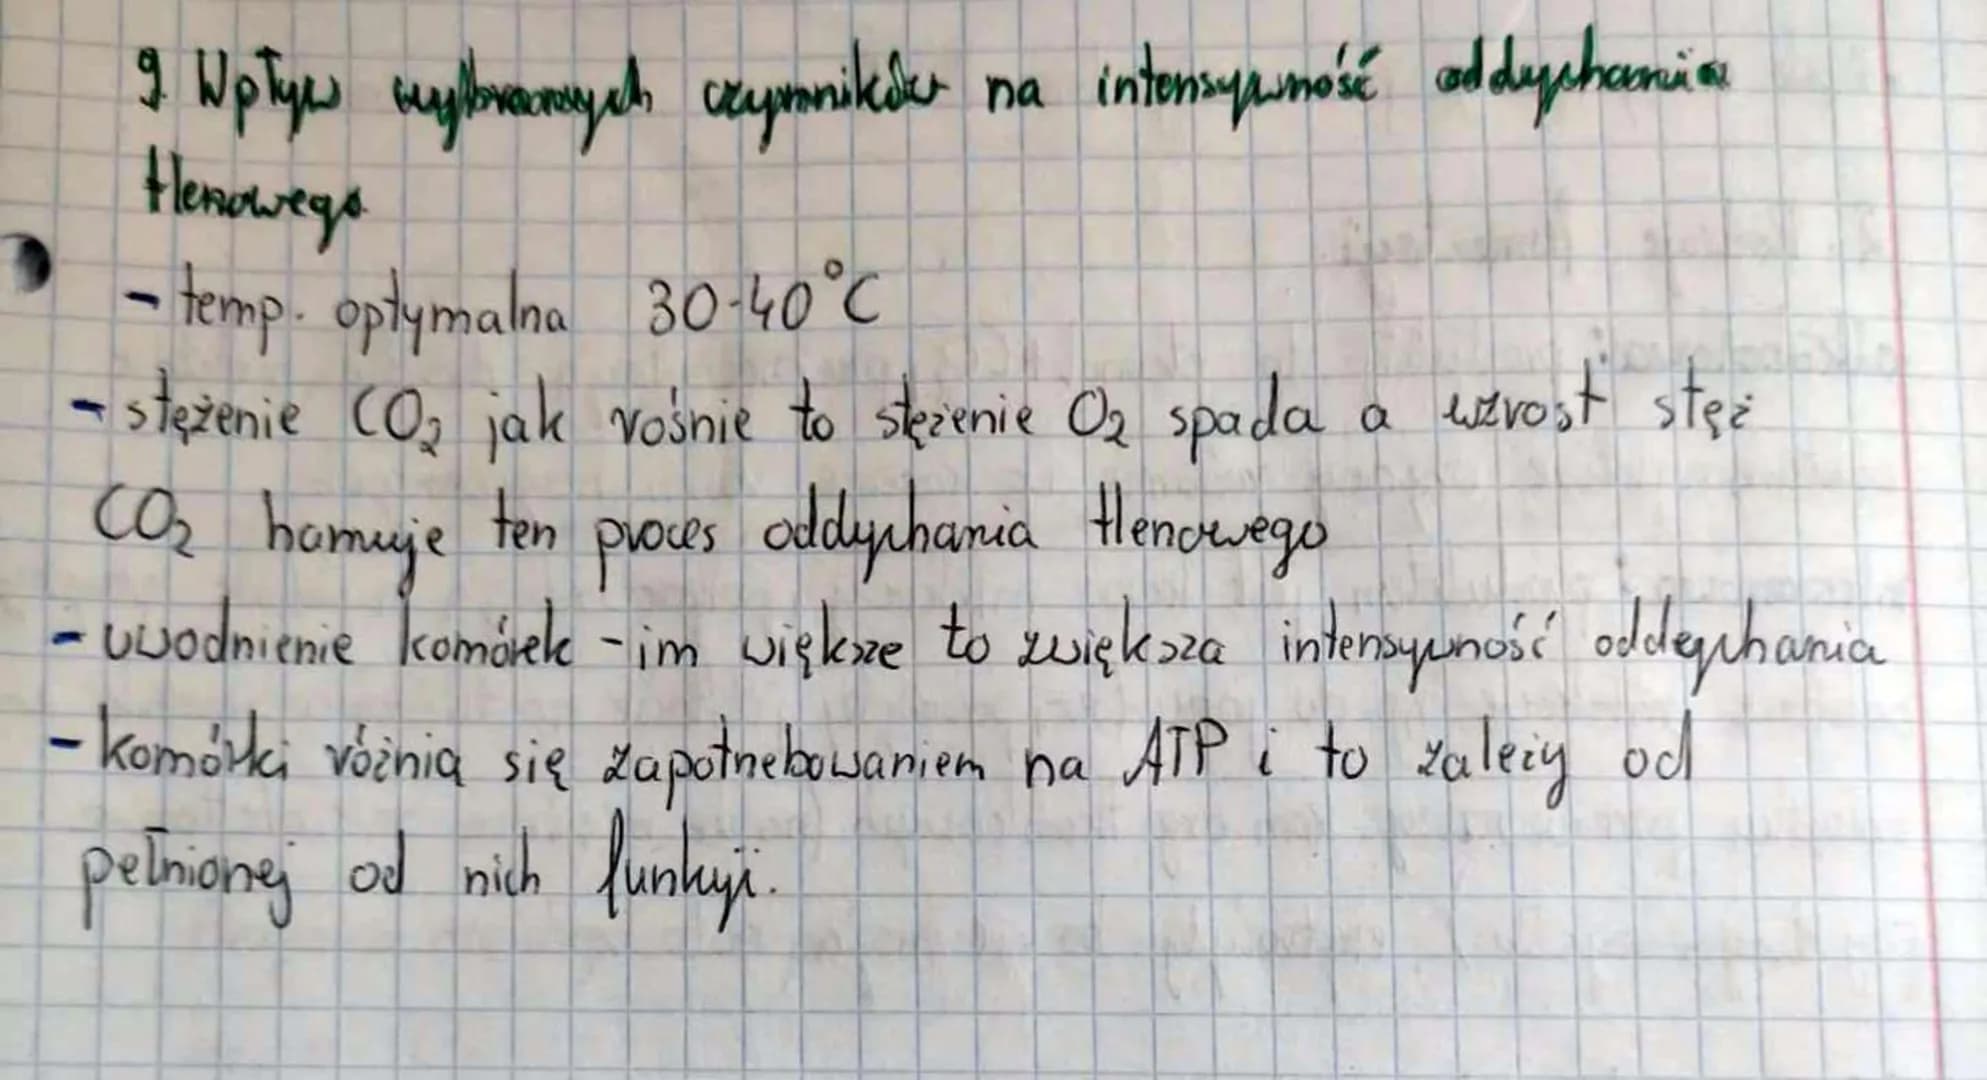 9. Wpływ wybranych czynników na intensywność oddychania
tlenowego
- temp. optymalna 30-40°C
- stężenie CO₂ jak rośnie to stężenie O₂ spada a wzrost stęż
CO₂ hamuje ten proces oddychania tlenowego
- uwodnienie komórek - im większe to zwiększa intensywność oddychania
- komórki różnią się zapotrzebowaniem na ATP i to zależy od
pełnionej od nich funkcji.